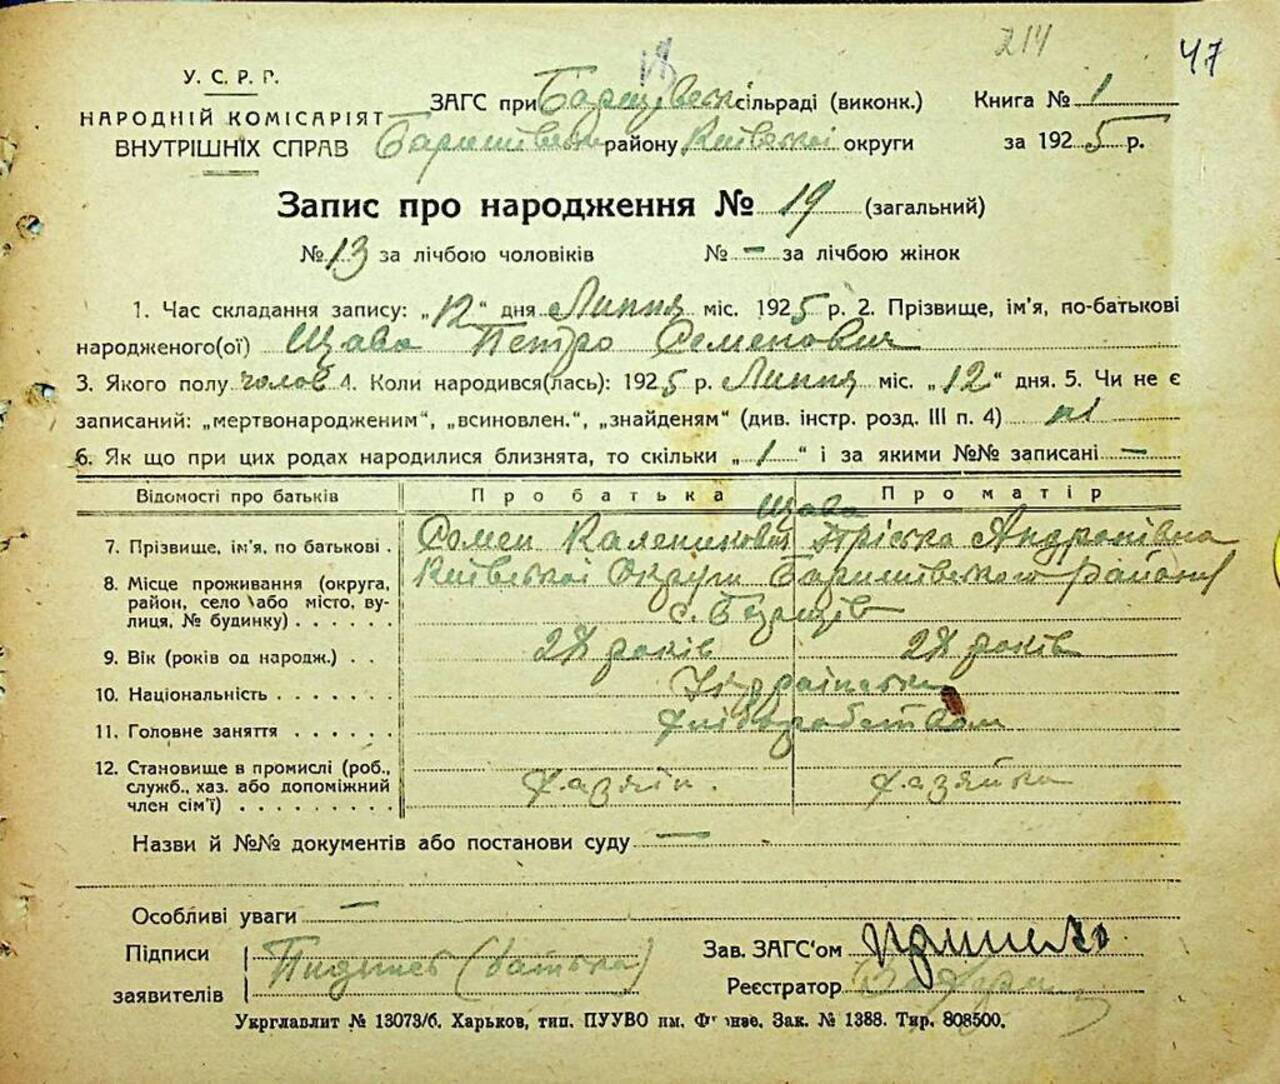 214 47
У. С. Р. Р.
НАРОДНІЙ КОМІСАРІЯТ
ВНУТРІШНІХ СПРАВ
ЗАГС при сільраді (виконк.) Книга № 1
району Київської округи за 1925 р.
Запис про народження № 19 (загальний)
№ 13 за лічбою чоловіків № — за лічбою жінок
1. Час складання запису: „12“ дня Липня міс. 1925 р. 2. Прізвище, ім'я, по-батькові
народженого(ої) Щава Петро Семенович
3. Якого полу чолов 4. Коли народився(лась): 1925 р. Липня міс. „12“ дня. 5. Чи не є
записаний: „мертвонародженим“, „всиновлен.“, „знайденям“ (див. інстр. розд. III п. 4) ні
6. Як що при цих родах народилися близнята, то скільки „1“ і за якими №№ записані —
Відомості про батьків Про батька Про матір
Щава
7. Прізвище, ім'я, по батькові . Семен Каленикович Пріська Андропівна
8. Місце проживання (округа, Київської Округи Баришівського району
район, село або місто, ву- с.
лиця, № будинку) . . . . . .
9. Вік (років од народж.) . . 28 років 28 років
10. Національність . . . . . . . Українська
11. Головне заняття . . . . . . хліборобством
12. Становище в промислі (роб.,
служб., хаз. або допоміжний хазяїн. хазяйка
член сім'ї) . . . . . . . . .
Назви й №№ документів або постанови суду —
Особливі уваги —
Підписи Підпись (батька) Зав. ЗАГС'ом
заявителів Реєстратор
Укрглавлит № 13073/б. Харьков, тип. ПУУВО им. Фрунзе. Зак. № 1388. Тир. 808500.